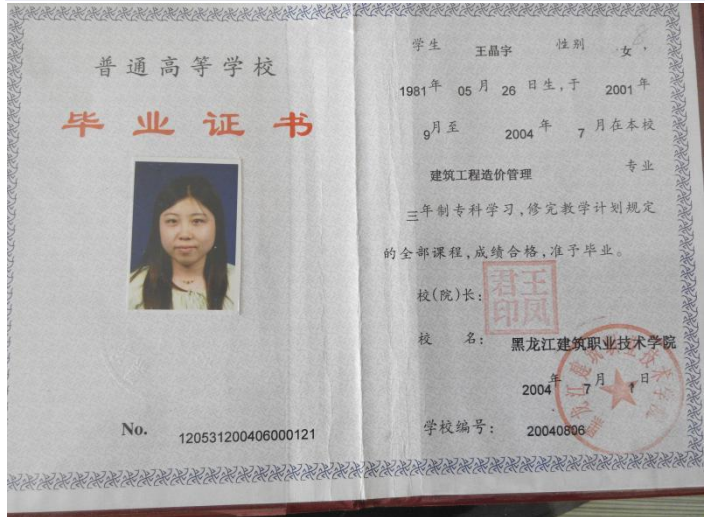 普通高等学校
毕业证书
No. 120531200406000121
学生 王晶宇 性别 女,
1981年 05月 26日生,于 2001年
9月至 2004年 7月在本校
建筑工程造价管理 专业
三年制专科学习,修完教学计划规定
的全部课程,成绩合格,准予毕业。
校(院)长: 王凤君印
校 名: 黑龙江建筑职业技术学院
2004年 7月 日
学校编号: 20040806
黑龙江建筑职业技术学院